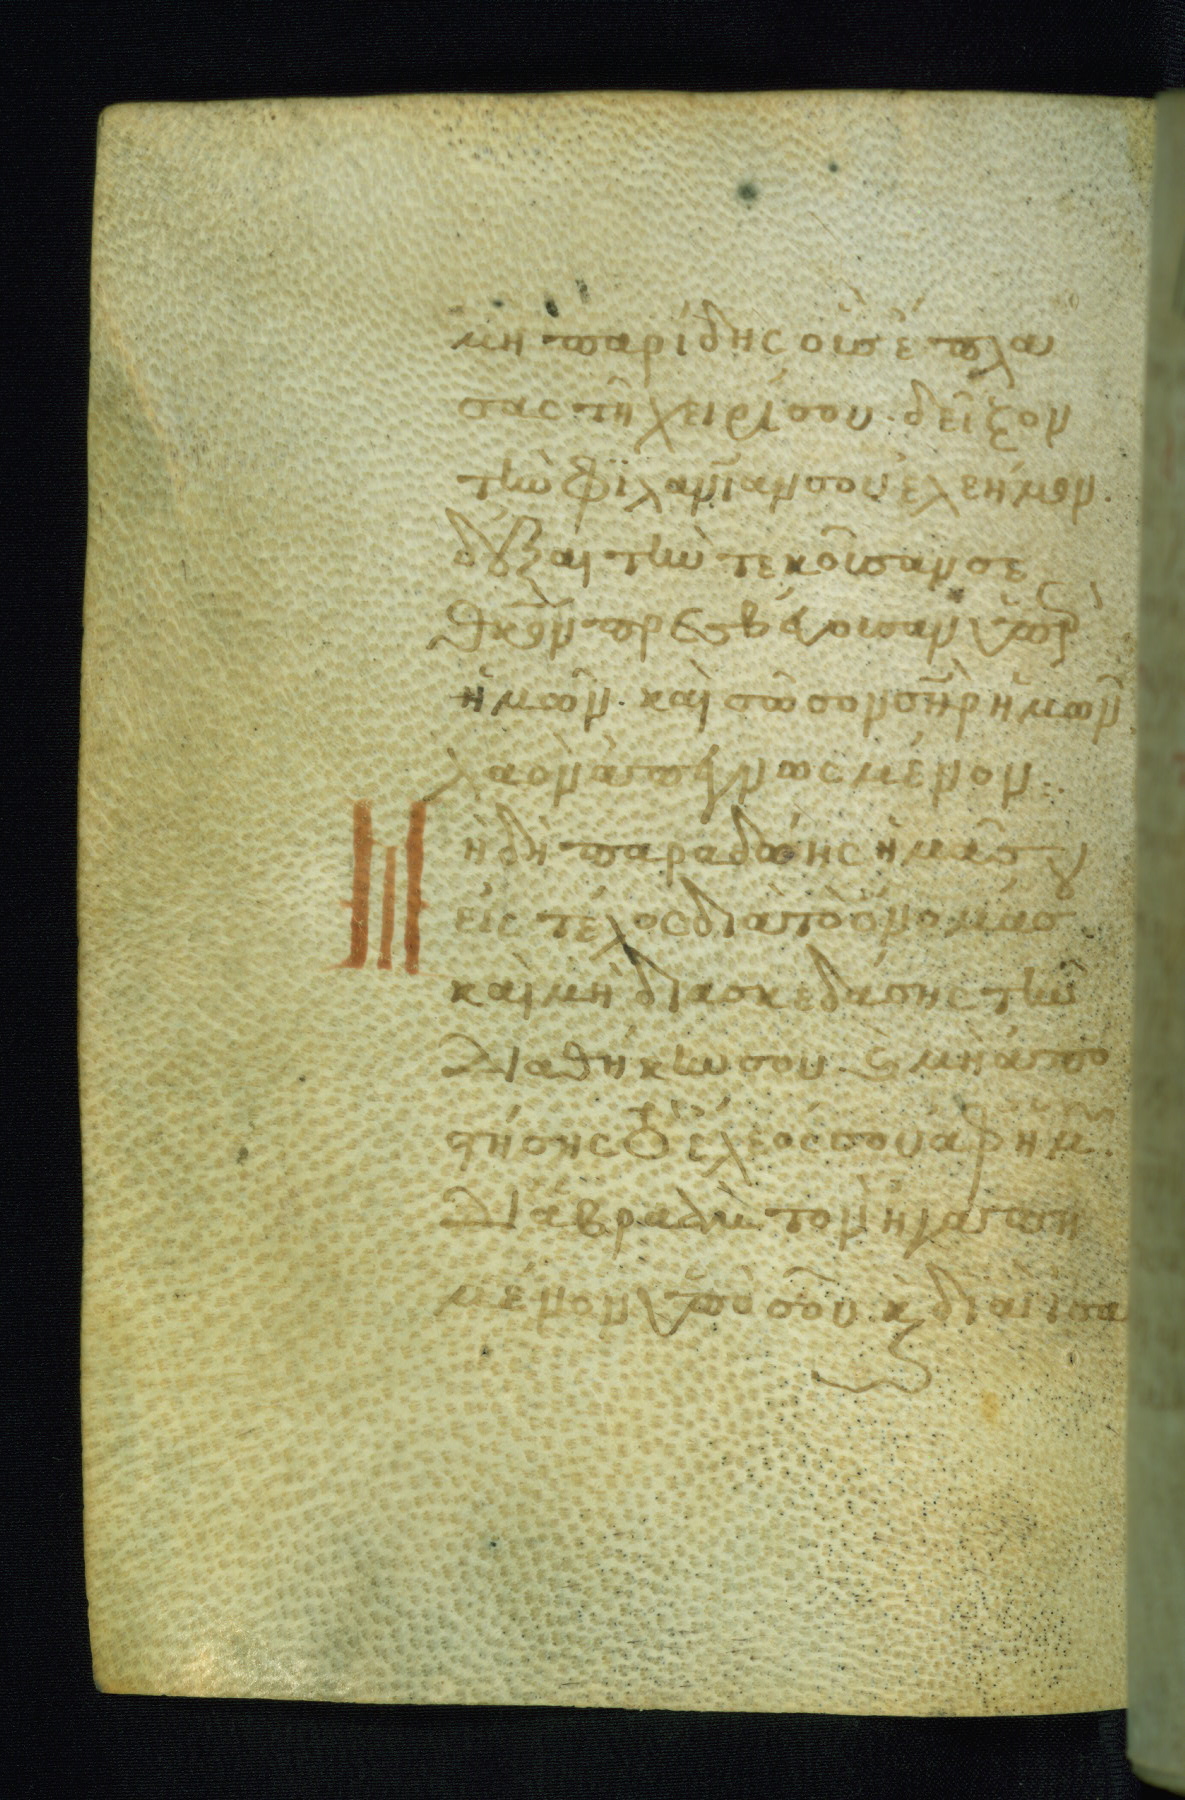 μὴ παρίδης οὓς ἔπλα
σας τῆ χειρί σου· δεῖξον
τὴν φϊλανίαν σου ἐλεῆμον·
δέξαι τὴν τεκοῦσαν σε
θκον πρεσβεύουσαν ὑπὲρ
ἡμῶν· καὶ σῶσον σηρ ἡμῶν
λαὸν ἀπεγνωσμένον:·
Μὴ δὴ παραδώης ἡμᾶς
εἰς τέλος διὰ τὸ ὄνομά σου
καὶ μὴ διασκεδάσης τὴν
διαθήκην σου ϗ μὴ ἀπο
στήσης τὸ ἔλεός σου ἀφ ἡμ·
δι ἀβραὰμ τὸν ἠγαπη
μένον ὑπὸ σοῦ ϗ διὰ ἰσα